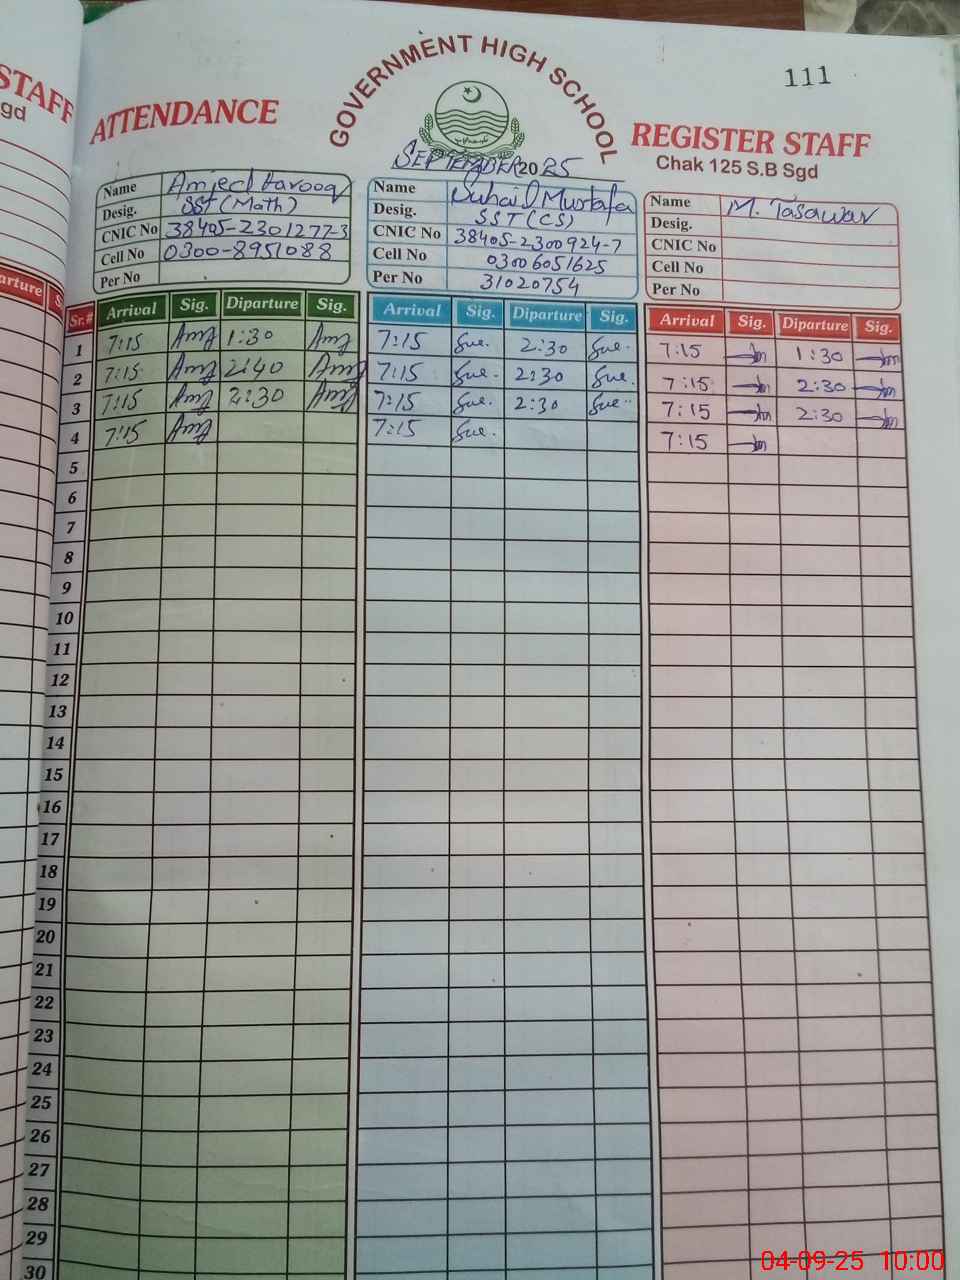 STAFF
gd
111
GOVERNMENT HIGH SCHOOL
ATTENDANCE
REGISTER STAFF
Chak 125 S.B Sgd
SEPTEMBER 2025
Name Amjed Farooq
Desig. SST (Math)
CNIC No 38405-2301277-3
Cell No 0300-8951088
Per No
Name Suhail Murtafa
Desig. SST (CS)
CNIC No 38405-2300924-7
Cell No 03006051625
Per No 31020754
Name M. Tasawar
Desig.
CNIC No
Cell No
Per No
arture S
Sr.# Arrival Sig. Diparture Sig. Arrival Sig. Diparture Sig. Arrival Sig. Diparture Sig.
1 7:15 Amj 1:30 Amj 7:15 Sue. 2:30 Sue. 7:15 1:30
2 7:15 Amj 2:40 Amj 7:15 Sue. 2:30 Sue. 7:15 2:30
3 7:15 Amj 2:30 Amj 7:15 Sue. 2:30 Sue. 7:15 2:30
4 7:15 Amj 7:15 Sue. 7:15
5
6
7
8
9
10
11
12
13
14
15
16
17
18
19
20
21
22
23
24
25
26
27
28
29
30
04-09-25 10:00